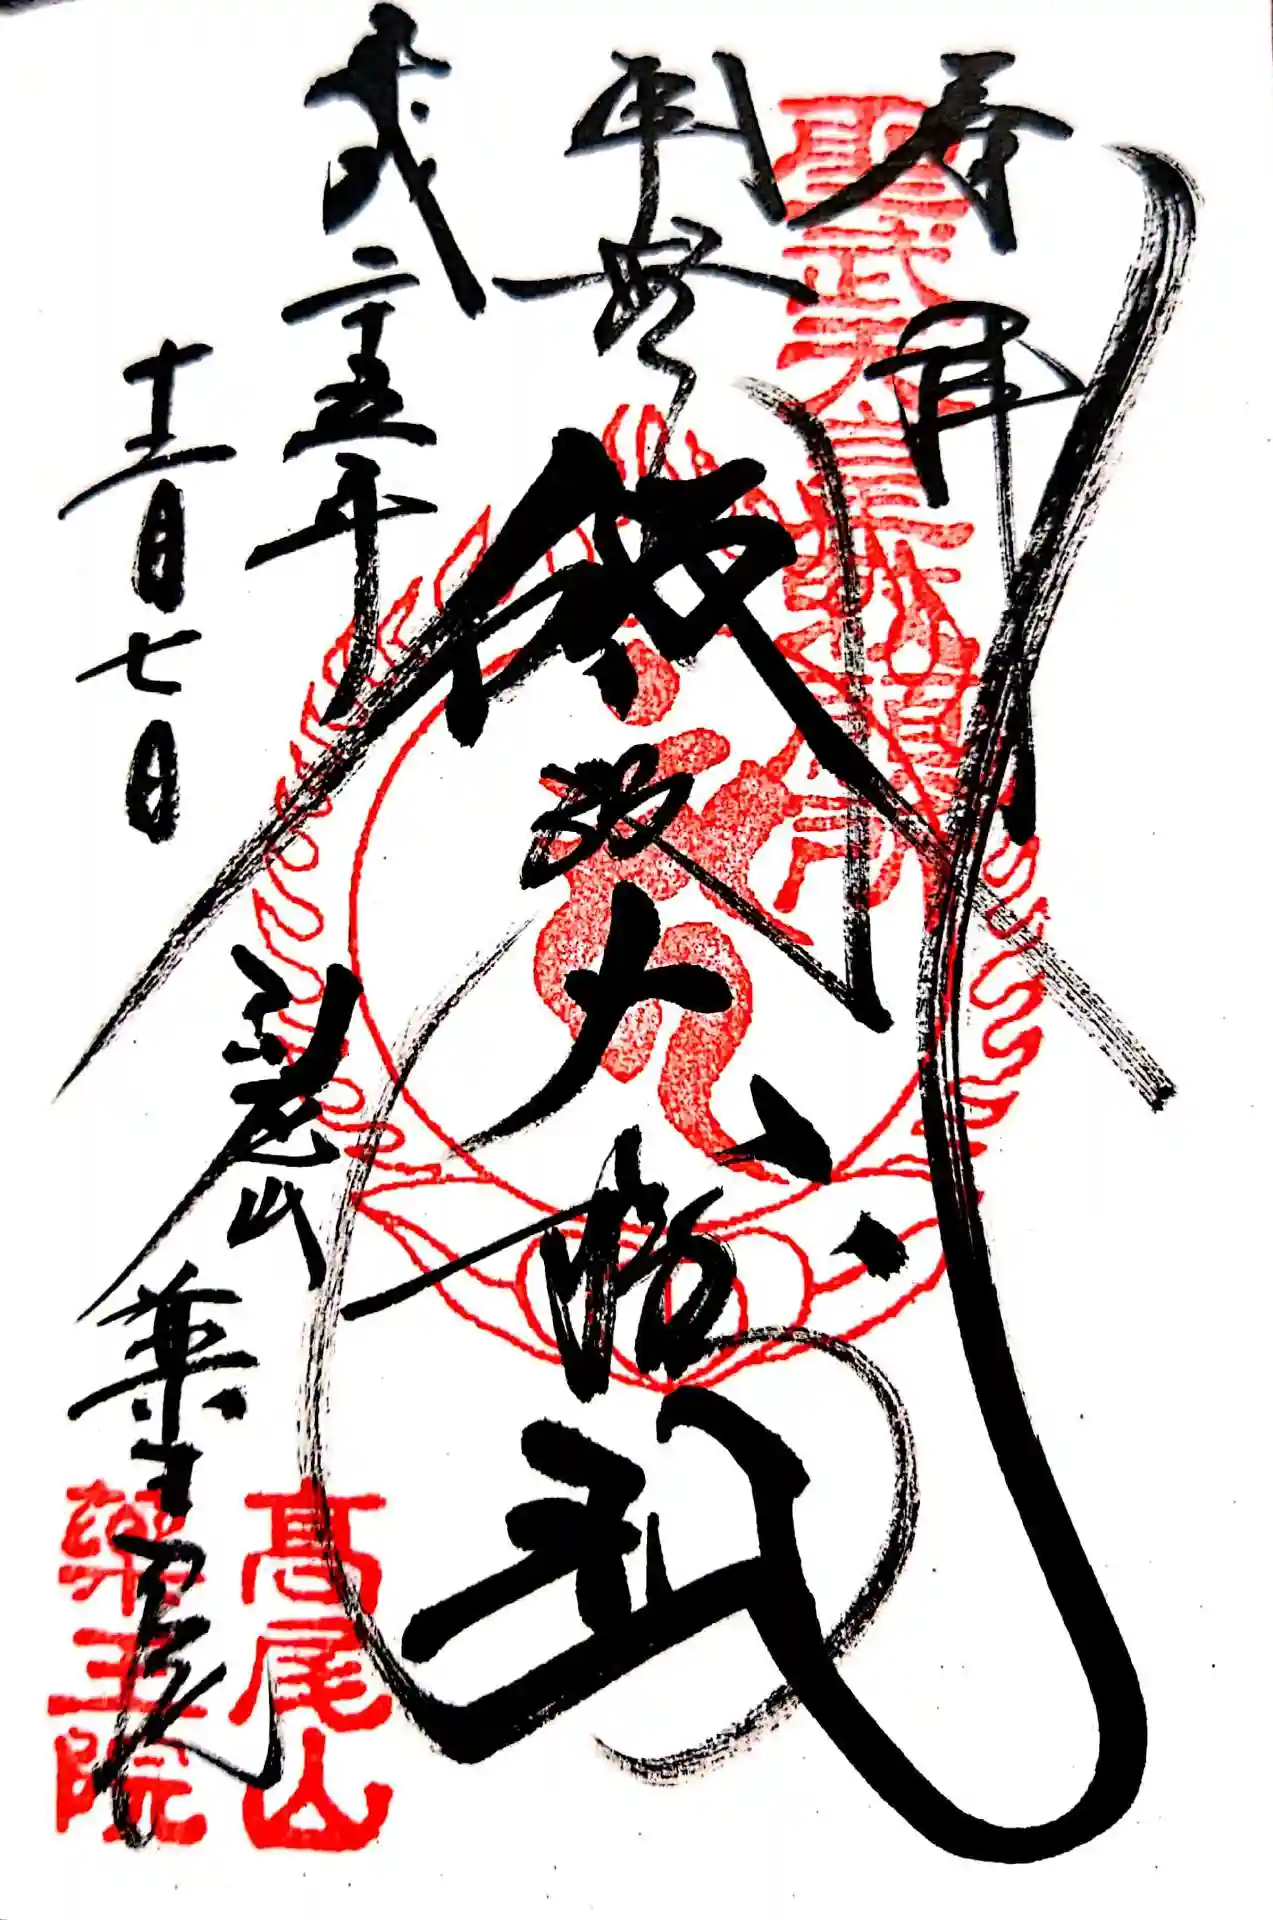 奉拝
聖武天皇勅願所
飯縄大権現
平成二十五年
十二月七日
高尾山
薬王院
高尾山
藥王院